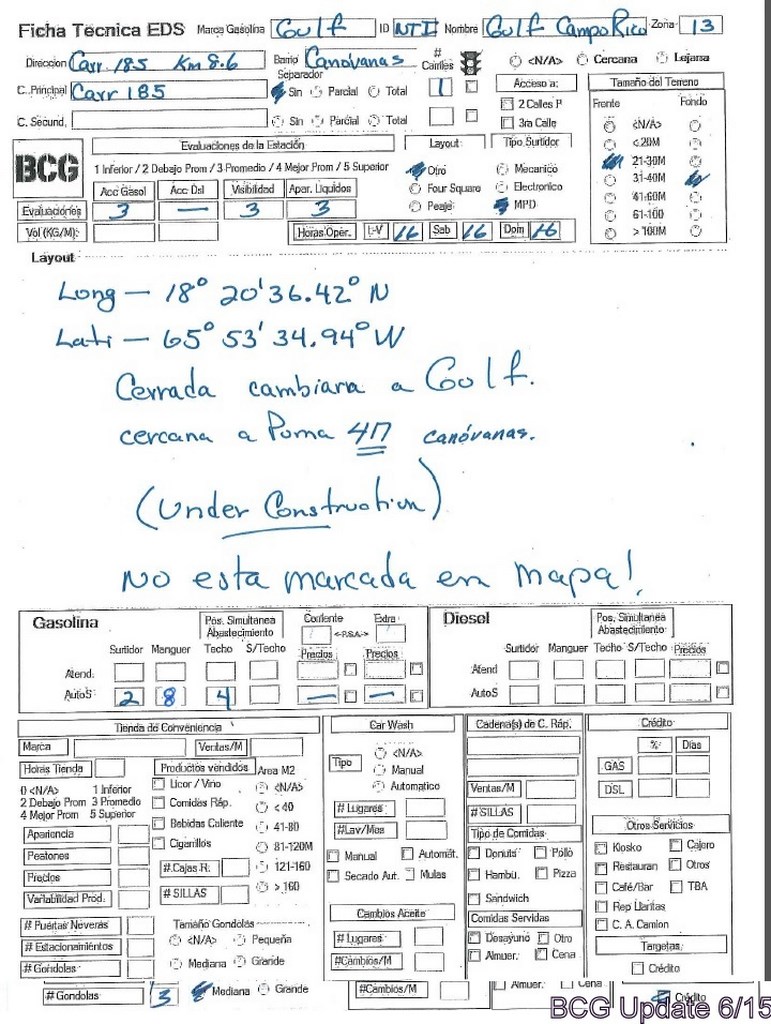 Ficha Tecnica EDS Marca Gasolina Gulf ID NTI Nombre Gulf Campo Rico Zona 13
Direccion Carr 185 Km 8.6 Barrio Canovanas # Carriles <N/A> Cercana Lejana
Separador
C. Principal Carr 185 Sin Parcial Total 1 Acceso a: Tamaño del Terreno
2 Calles P Frente Fondo
C. Secund. Sin Parcial Total 3ra Calle <N/A>
Evaluaciones de la Estación Layout Tipo Surtidor < 20M
BCG 1 Inferior / 2 Debajo Prom / 3 Promedio / 4 Mejor Prom / 5 Superior Otro Mecanico 21-30M
Acc Gasol Acc Dsl Visibilidad Apar. Liquidos Four Square Electronico 31-40M
Evaluaciones 3 — 3 3 Peaje MPD 41-60M
61-100
Vol (KG/M): Horas Oper. L-V 16 Sab 16 Dom 16 > 100M
Layout
Long — 18° 20' 36.42° N
Lati — 65° 53' 34.94° W
Cerrada cambiara a Gulf.
cercana a Puma 417 canóvanas.
(Under Construction)
No esta marcada en mapa!
Gasolina Pos. Simultanea Abastecimiento Corriente <-P.S.A.-> Extra Diesel Pos. Simultanea Abastecimiento
Surtidor Manguer Techo S/Techo Precios Precios Surtidor Manguer Techo S/Techo Precios
Atend. Atend
AutoS 2 8 4 — — AutoS
Tienda de Conveniencia Car Wash Cadena(s) de C. Ráp. Crédito
Marca Ventas/M <N/A> % Días
Horas Tienda Productos vendidos Area M2 Tipo Manual GAS
0 <N/A> 1 Inferior Licor / Vino <N/A> Automatico Ventas/M DSL
2 Debajo Prom 3 Promedio Comidas Ráp. < 40 # Lugares #SILLAS
4 Mejor Prom 5 Superior Bebidas Caliente 41-80 #Lav/Mes Tipo de Comidas Otros Servicios
Apariencia Cigarrillos 81-120M Manual Automát. Donuts Pollo Kiosko Cajero
Peatones #.Cajas R. 121-160 Secado Aut. Mulas Hambu. Pizza Restauran Otros
Precios # SILLAS > 160 Sandwich Café/Bar TBA
Variabilidad Prod. Cambios Aceite Comidas Servidas Rep Llantas
# Puertas Neveras Tamaño Gondolas # Lugares Desayuno Otro C. A. Camion
# Estacionamientos <N/A> Pequeña #Cambios/M Almuer. Cena Targetas
# Gondolas Mediana Grande Crédito
# Gondolas 3 Mediana Grande #Cambios/M Almuer. Cena Crédito
BCG Update 6/15